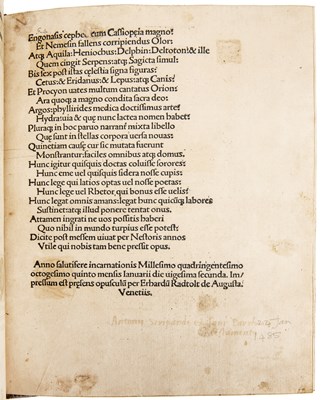 Engonasis cephoꝫ cum Cassiopeia magno:
Et Nemesin fallens corripiendus Olor:
Atqꝫ Aquila: Heniochus: Delphin: Deltoton: & ille
Quem cingit Serpens: atqꝫ Sagicta simul:
Bis sex post istas cęlestia signa figuras:
Cetus: & Eridanus: & Lepus: atqꝫ Canis:
Et Procyon uates multum cantatus Orion:
Ara quoqꝫ a magno condita sacra deo:
Argos: phyllirides medica doctissimus arte:
Hydra: uia & quę nunc lactea nomen habet:
Pluraqꝫ in hoc paruo narrant mixta libello
Quę sunt in stellas corpora uersa nouas:
Quinetiam causę cur sic mutata fuerunt
Monstrantur: faciles omnibus atqꝫ domus.
Hunc igitur quisquis doctas coluisse sorores:
Hunc eme uel quisquis sidera nosse cupis:
Hunc lege qui latios optas uel nosse poetas:
Hunc lege uel Rhetor, qui bonus esse uelis:
Hunc legat omnis amans: legat hunc quicūqꝫ labores
Sustinet: atqꝫ illud ponere tentat onus.
Attamen ingrati ne uos possitis haberi
Quo nihil in mundo turpius esse potest:
Dicite post messem uiuat per Nestoris annos
Vtile qui nobis tam bene pressit opus.
Anno salutifere incarnationis Millesimo quadringentesimo
octogesimo quinto mensis Ianuarii die uigesima secunda. Im
pressum est pręsens opusculū per Erhardū Radtolt de Augusta.
Venetiis.
1485